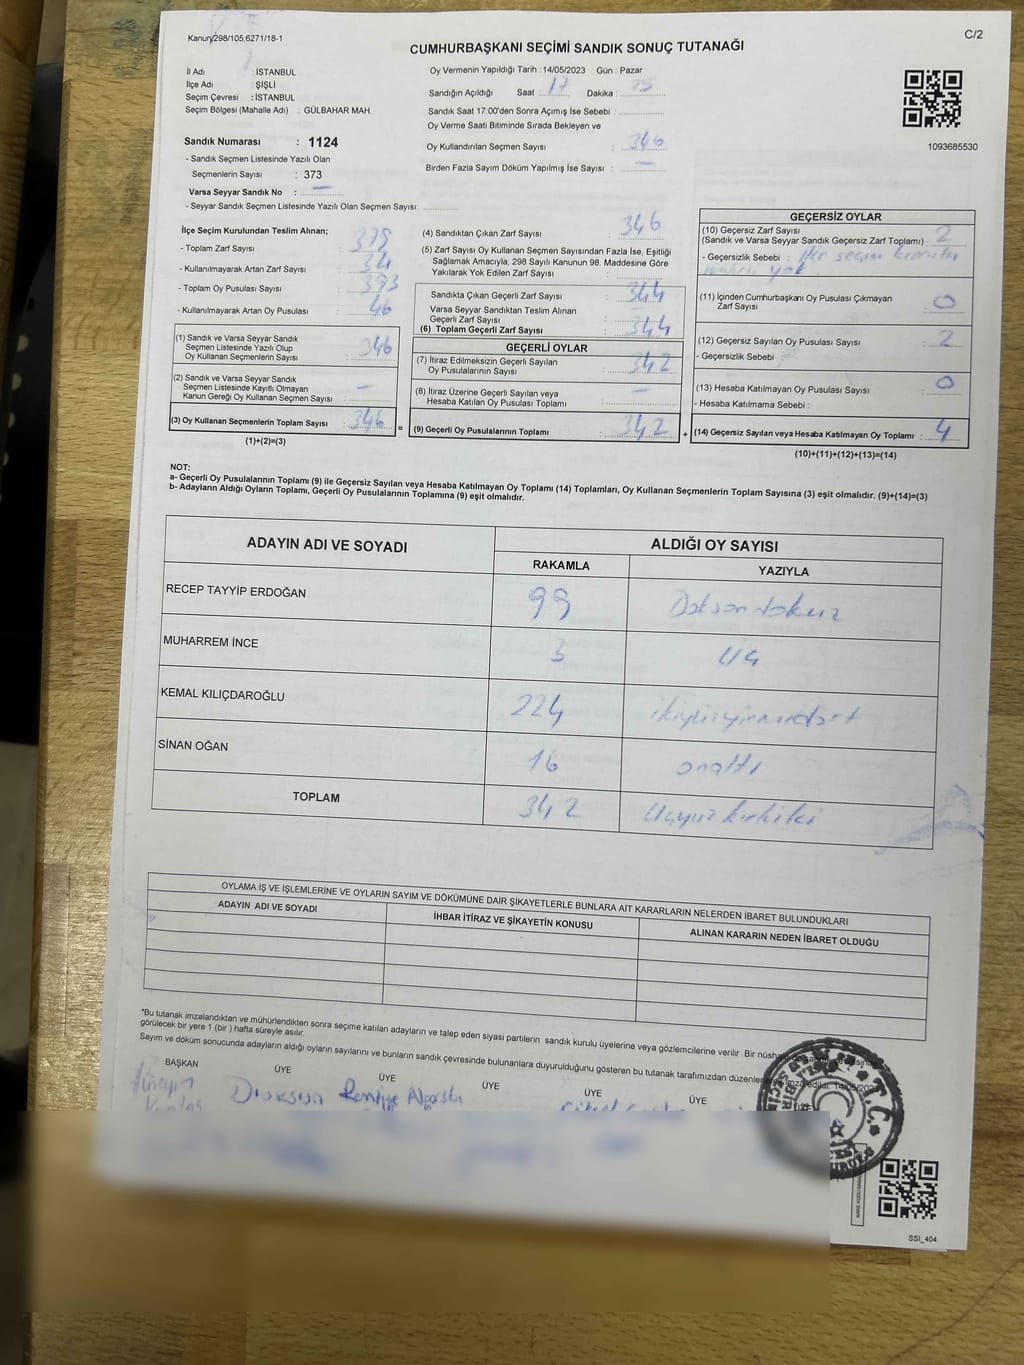 Kanun/298/105,6271/18-1
C/2
CUMHURBAŞKANI SEÇİMİ SANDIK SONUÇ TUTANAĞI
İl Adı : İSTANBUL
İlçe Adı : ŞİŞLİ
Seçim Çevresi : İSTANBUL
Seçim Bölgesi (Mahalle Adı) : GÜLBAHAR MAH.
Oy Vermenin Yapıldığı Tarih : 14/05/2023 Gün : Pazar
Sandığın Açıldığı Saat : 17 Dakika :
Sandık Saat 17:00'den Sonra Açılmış İse Sebebi :
Oy Verme Saati Bitiminde Sırada Bekleyen ve
Oy Kullandırılan Seçmen Sayısı : 346
Birden Fazla Sayım Döküm Yapılmış İse Sayısı : —
1093685530
Sandık Numarası : 1124
- Sandık Seçmen Listesinde Yazılı Olan
Seçmenlerin Sayısı : 373
Varsa Seyyar Sandık No : —
- Seyyar Sandık Seçmen Listesinde Yazılı Olan Seçmen Sayısı:
İlçe Seçim Kurulundan Teslim Alınan;
- Toplam Zarf Sayısı :
- Kullanılmayarak Artan Zarf Sayısı :
- Toplam Oy Pusulası Sayısı : 393
- Kullanılmayarak Artan Oy Pusulası : 46
(1) Sandık ve Varsa Seyyar Sandık
Seçmen Listesinde Yazılı Olup
Oy Kullanan Seçmenlerin Sayısı : 346
(2) Sandık ve Varsa Seyyar Sandık
Seçmen Listesinde Kayıtlı Olmayan
Kanun Gereği Oy Kullanan Seçmen Sayısı : —
(3) Oy Kullanan Seçmenlerin Toplam Sayısı : 346
(1)+(2)=(3)
=
(4) Sandıktan Çıkan Zarf Sayısı : 346
(5) Zarf Sayısı Oy Kullanan Seçmen Sayısından Fazla İse, Eşitliği
Sağlamak Amacıyla, 298 Sayılı Kanunun 98. Maddesine Göre
Yakılarak Yok Edilen Zarf Sayısı :
Sandıkta Çıkan Geçerli Zarf Sayısı : 344
Varsa Seyyar Sandıktan Teslim Alınan
Geçerli Zarf Sayısı :
(6) Toplam Geçerli Zarf Sayısı : 344
GEÇERLİ OYLAR
(7) İtiraz Edilmeksizin Geçerli Sayılan
Oy Pusulalarının Sayısı : 342
(8) İtiraz Üzerine Geçerli Sayılan veya
Hesaba Katılan Oy Pusulası Toplamı : —
(9) Geçerli Oy Pusulalarının Toplamı : 342
+
GEÇERSİZ OYLAR
(10) Geçersiz Zarf Sayısı
(Sandık ve Varsa Seyyar Sandık Geçersiz Zarf Toplamı) : 2
- Geçersizlik Sebebi : seçim
yok.
(11) İçinden Cumhurbaşkanı Oy Pusulası Çıkmayan
Zarf Sayısı : 0
(12) Geçersiz Sayılan Oy Pusulası Sayısı : 2
- Geçersizlik Sebebi :
(13) Hesaba Katılmayan Oy Pusulası Sayısı : 0
- Hesaba Katılmama Sebebi :
(14) Geçersiz Sayılan veya Hesaba Katılmayan Oy Toplamı : 4
(10)+(11)+(12)+(13)=(14)
NOT:
a- Geçerli Oy Pusulalarının Toplamı (9) ile Geçersiz Sayılan veya Hesaba Katılmayan Oy Toplamı (14) Toplamları, Oy Kullanan Seçmenlerin Toplam Sayısına (3) eşit olmalıdır. (9)+(14)=(3)
b- Adayların Aldığı Oyların Toplamı, Geçerli Oy Pusulalarının Toplamına (9) eşit olmalıdır.
ADAYIN ADI VE SOYADI ALDIĞI OY SAYISI
RAKAMLA YAZIYLA
RECEP TAYYİP ERDOĞAN 99 Doksan dokuz
MUHARREM İNCE 3 Üç
KEMAL KILIÇDAROĞLU 224 ikiyüzyirmidört
SİNAN OĞAN 16 onaltı
TOPLAM 342 Üçyüzkırkiki
OYLAMA İŞ VE İŞLEMLERİNE VE OYLARIN SAYIM VE DÖKÜMÜNE DAİR ŞİKAYETLERLE BUNLARA AİT KARARLARIN NELERDEN İBARET BULUNDUKLARI
ADAYIN ADI VE SOYADI İHBAR İTİRAZ VE ŞİKAYETİN KONUSU ALINAN KARARIN NEDEN İBARET OLDUĞU
*Bu tutanak imzalandıktan ve mühürlendikten sonra seçime katılan adayların ve talep eden siyasi partilerin sandık kurulu üyelerine veya gözlemcilerine verilir. Bir
görülecek bir yere 1 (bir ) hafta süreyle asılır.
Sayım ve döküm sonucunda adayların aldığı oyların sayılarını ve bunların sandık çevresinde bulunanlara duyurulduğunu gösteren bu tutanak tarafımızdan
BAŞKAN ÜYE ÜYE ÜYE ÜYE ÜYE
Hüseyin
T.C.
SSİ_404